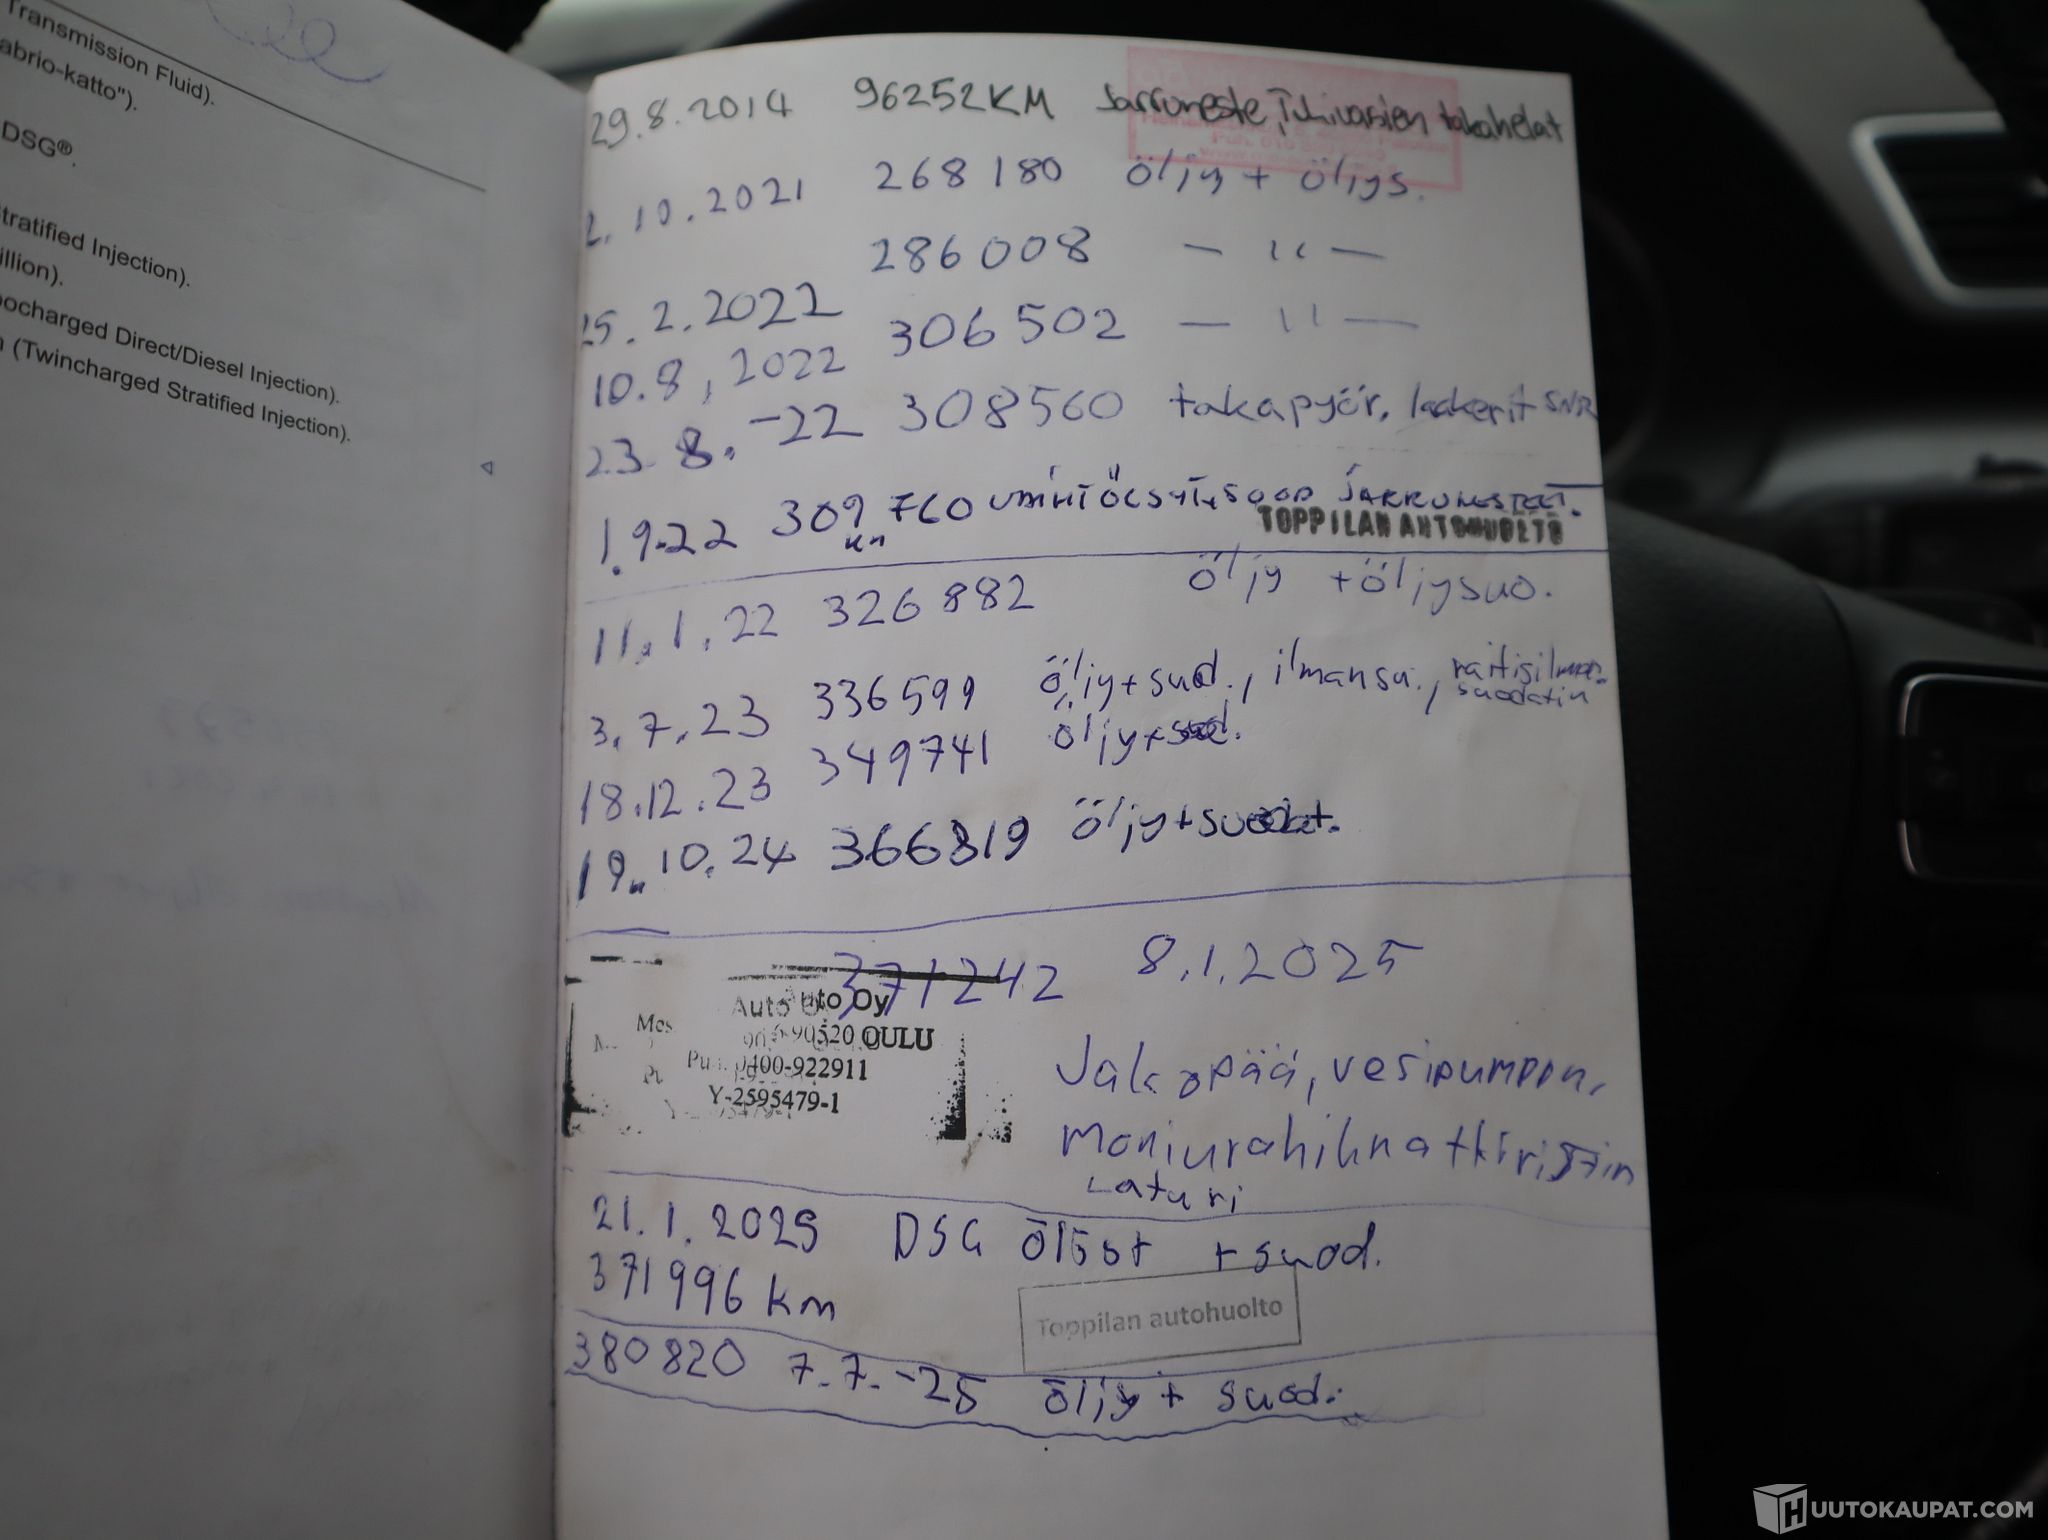 Transmission Fluid).
abrio-katto").
DSG®.
tratified Injection).
illion).
ocharged Direct/Diesel Injection).
n (Twincharged Stratified Injection).
29.8.2014 96252KM Jarruneste, Tukivarsien takahelat
2.10.2021 268180 öljy + öljys.
286008 — " —
25.2.2022
10.8.2022 306502 — " —
23.8.-22 308560 takapyör. laakerit SNR
1.9.22 309760 km JARRUNESTEET.
TOPPILAN AUTOHUOLTO
11.1.22 326882 öljy + öljysuo.
3.7.23 336599 öljy + suod., ilmansu., raitisilman-
suodatin
18.12.23 349741 öljy + suod.
19.10.24 366819 öljy + suodat.
371242 8.1.2025
Auto Oy
90520 OULU
0400-922911
Y-2595479-1
Jakopää, vesipumppu,
Moniurahihnatkiristin
Laturi
21.1.2025 DSG öljyt + suod.
371996 km
Toppilan autohuolto
380820 7.7.-25 öljy + suod.
HUUTOKAUPAT.COM